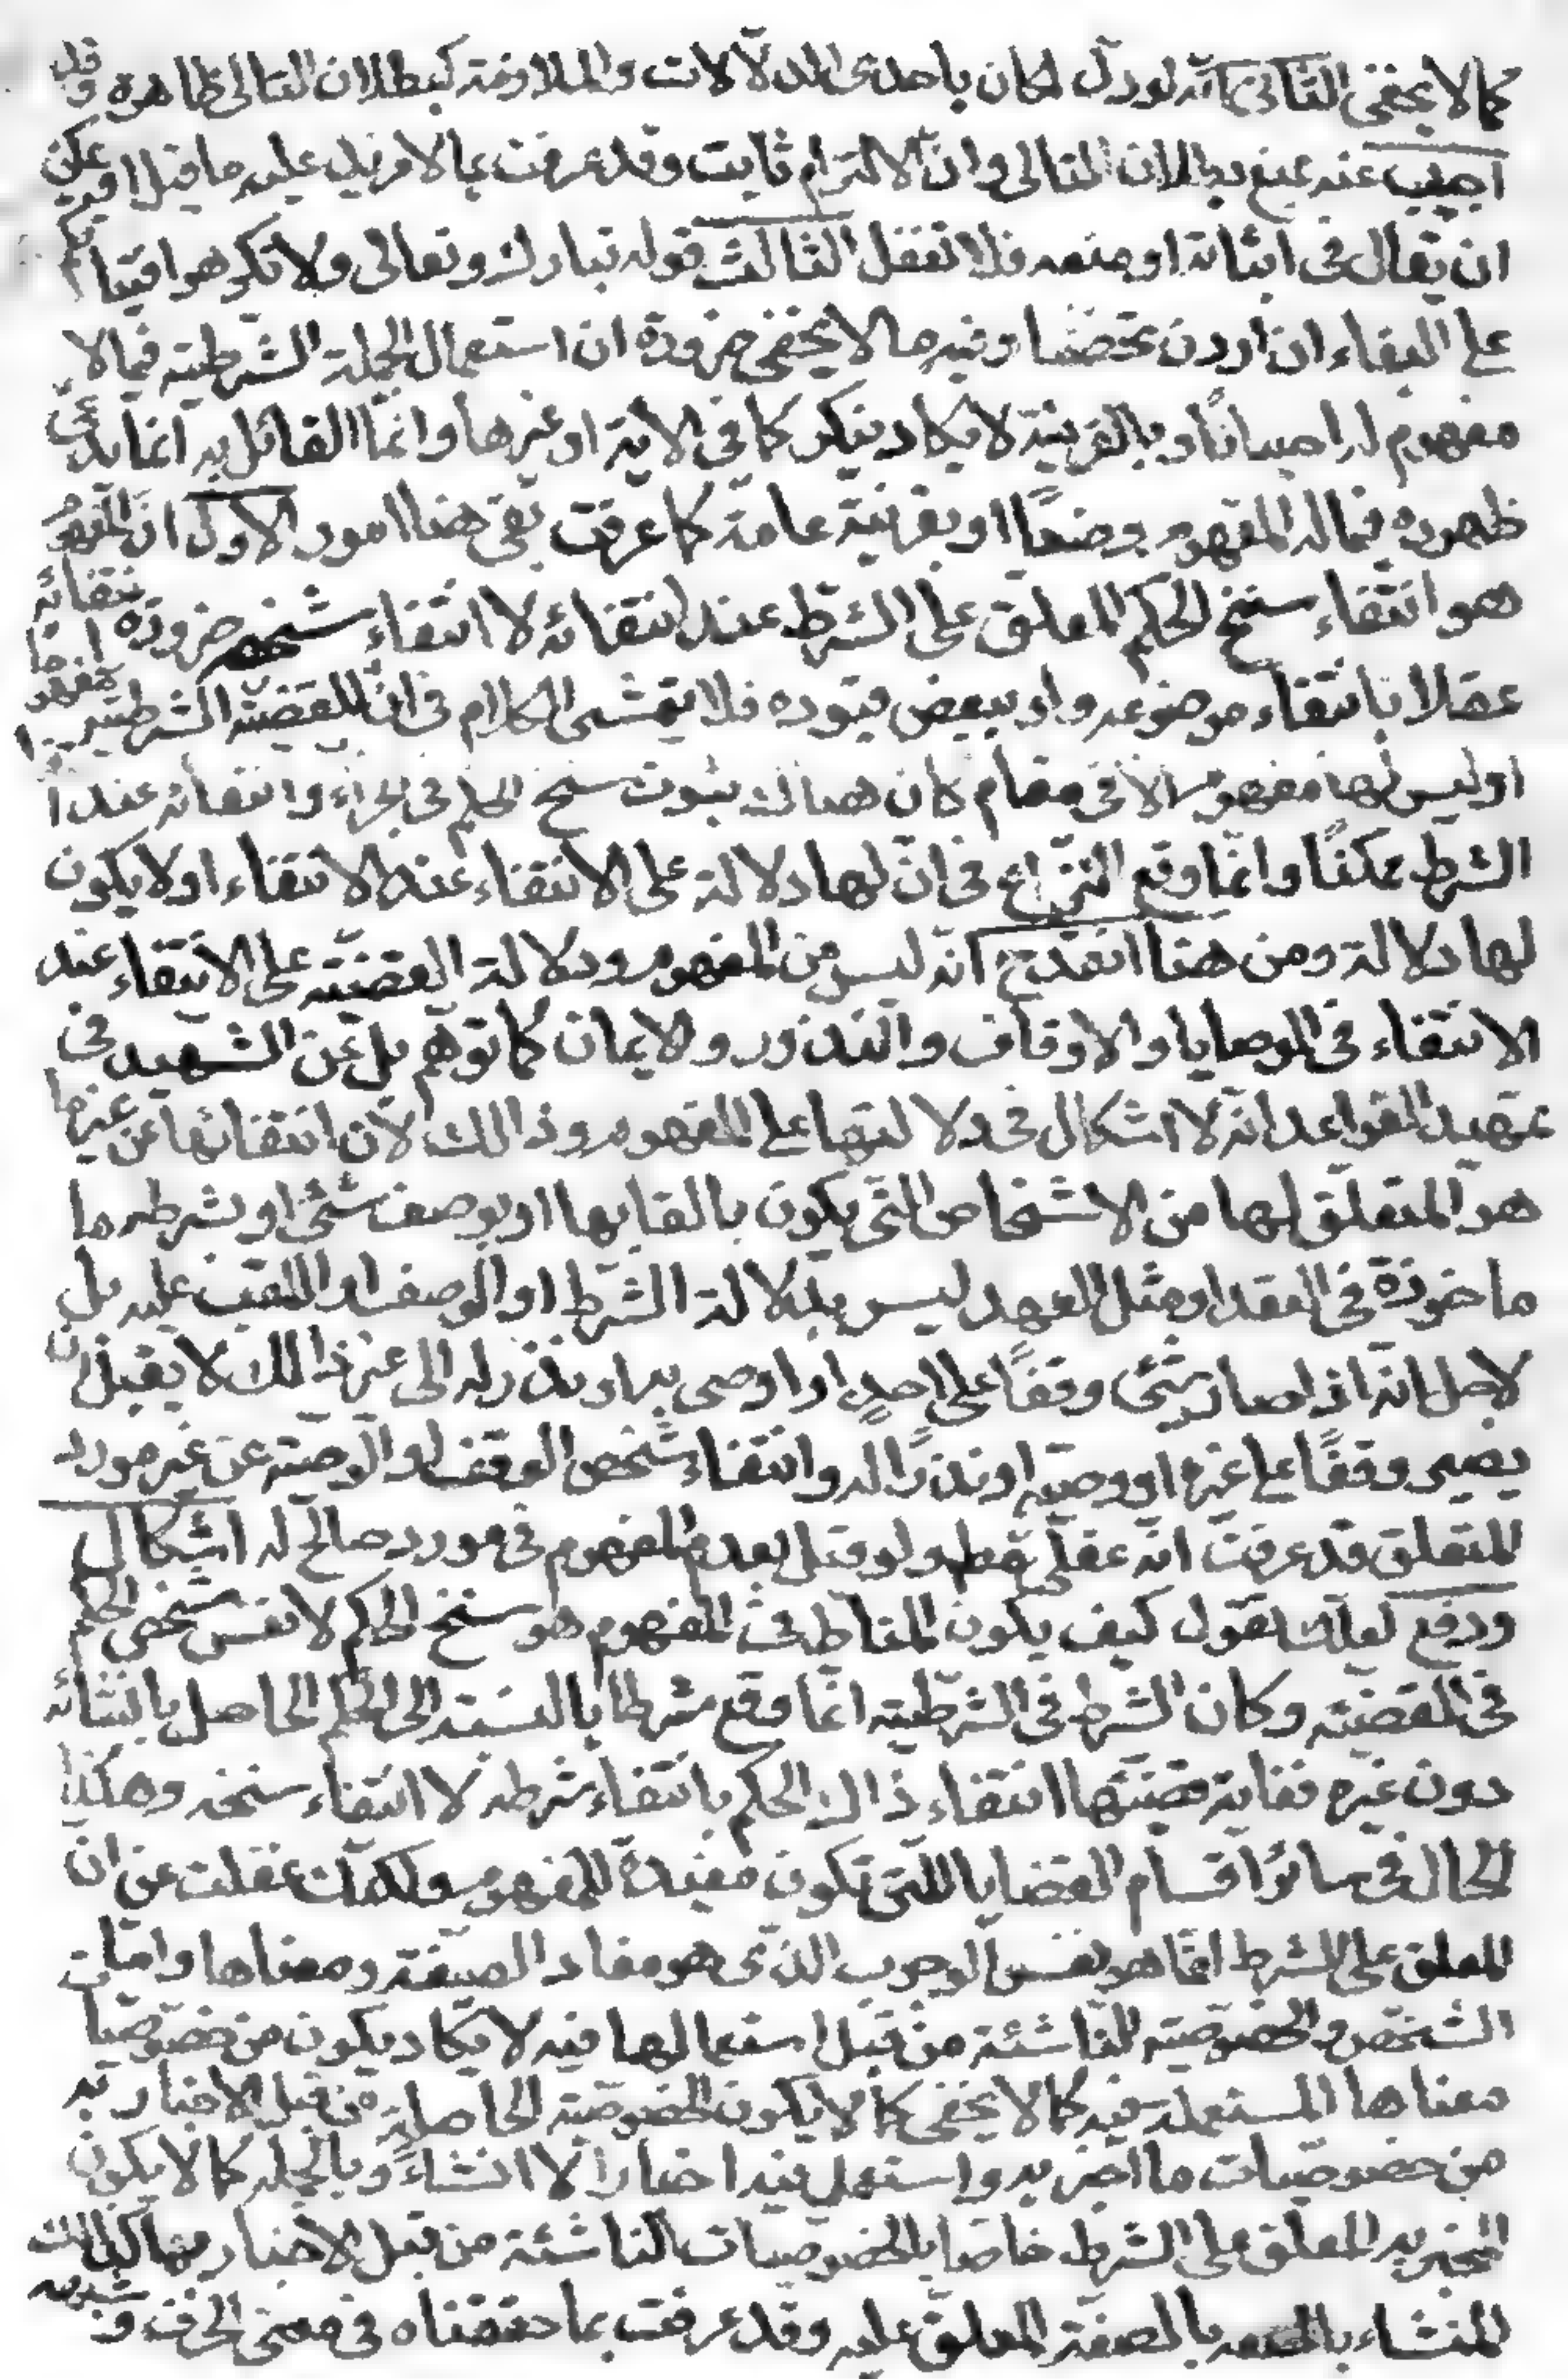 كما لا يخفى الثاني انّه لو دلّ لكان باحدى الدلالات والملازمة كبطلان التالى ظاهرة وقد
اجيب عنه بمنع بطلان التالى وان الالتزام ثابت وقد عرفت بما لا مزيد عليه ما قيل او يمكن
ان يقال فى اثباته او منعه فلا تغفل الثالث قوله تبارك وتعالى ولا تكرهوا فتياتكم
على البغاء ان اردن تحصّنا وفيه ما لا يخفى ضرورة ان استعمال الجملة الشّرطية فيما لا
مفهوم له احيانًا وبالقرينة لا يكاد ينكر كما فى الاية او غيرها وانّما القائل به انما يدّعى
ظهوره فيما له المفهوم وضعًا او بقرينة عامة كما عرفت بقى هنا امور الاول انّ المفهوم
هو انتفاء سنخ الحكم المعلق على الشرط عند انتفائه لا انتفاء شخصه ضرورة انتفائه
عقلا بانتفاء موضوعه ولو ببعض قيوده فلا يتمشى الكلام فى انّ للقضية الشرطية مفهوما
او ليس لها مفهوم الا فى مقام كان هناك ثبوت سنخ الحكم فى الجزاء وانتفائه عند ا
الشرط ممكنًا وانّما وقع النّزاع فى انّ لها دلالة على الانتفاء عند الانتفاء او لا يكون
لها دلالة ومن هنا انقدح انّه ليس من المفهوم ودلالة القضيّة على الانتفاء عند
الانتفاء فى الوصايا والاوقاف والنذور والايمان كما توهم بل عن الشهيد فى
تمهيد القواعد انّه لا اشكال فى دلالتها على المفهوم وذالك لان انتفائها عن غير ما
هو المتعلّق لها من الاشخاص التى يكون بالقابها او بوصف شئ او بشرطه ما
ماخوذة فى العقد او مثل العهد ليس بدلالة الشرط او الوصف او اللقب عليه بل
لاجل انّه اذا صار شئ وقفًا على احدٍ او اوصى به او نذر له الى غير ذالك لا يقبل ان
يصير وقفًا على غيره او وصيّة او نذرًا له وانتفاء شخص الوقف او الوصيّة عن غير مورد
المتعلق قد عرفت انّه عقلىّ مطلقا ولو قيل بعدم المفهوم فى مورد صالح له اشكال
ودفع لعلك تقول كيف يكون المناط فى المفهوم هو سنخ الحكم لا نفس شخص الحكم
فى القضيّة وكان الشرط فى الشرطيّة انّما وقع شرطا بالنسبة الى الحكم الحاصل بانشائه
دون غيره فغاية قضيّتها انتفاء ذاك الحكم بانتفاء شرطه لا انتفاء سنخه وهكذا
الحال فى سائر اقسام القضايا اللتى تكون مفيدة للمفهوم ولكنّك غفلت عن ان
المعلق على الشرط انّما هو نفس الوجوب الذى هو مفاد الصيغة ومعناها وامّا
الشخص والخصوصيّة الناشئة من قبل استعمالها فيه لا يكاد يكون من خصوصيات
معناها المستعملة فيه كما لا يخفى كما لا يكون الخصوصيّة الحاصلة من قبل الاخبار به
من خصوصيات ما اخبر به واستعمل فيه اخبارا لا انشاءً وبالجمله كما لا يكون
المخبر به المعلق على الشرط خاصا بالخصوصيات الناشئة من قبل الاخبار به كذالك
المنشاء بالصيغة المعلق عليه وقد عرفت بما حققناه فى معنى الحرف وشبهه